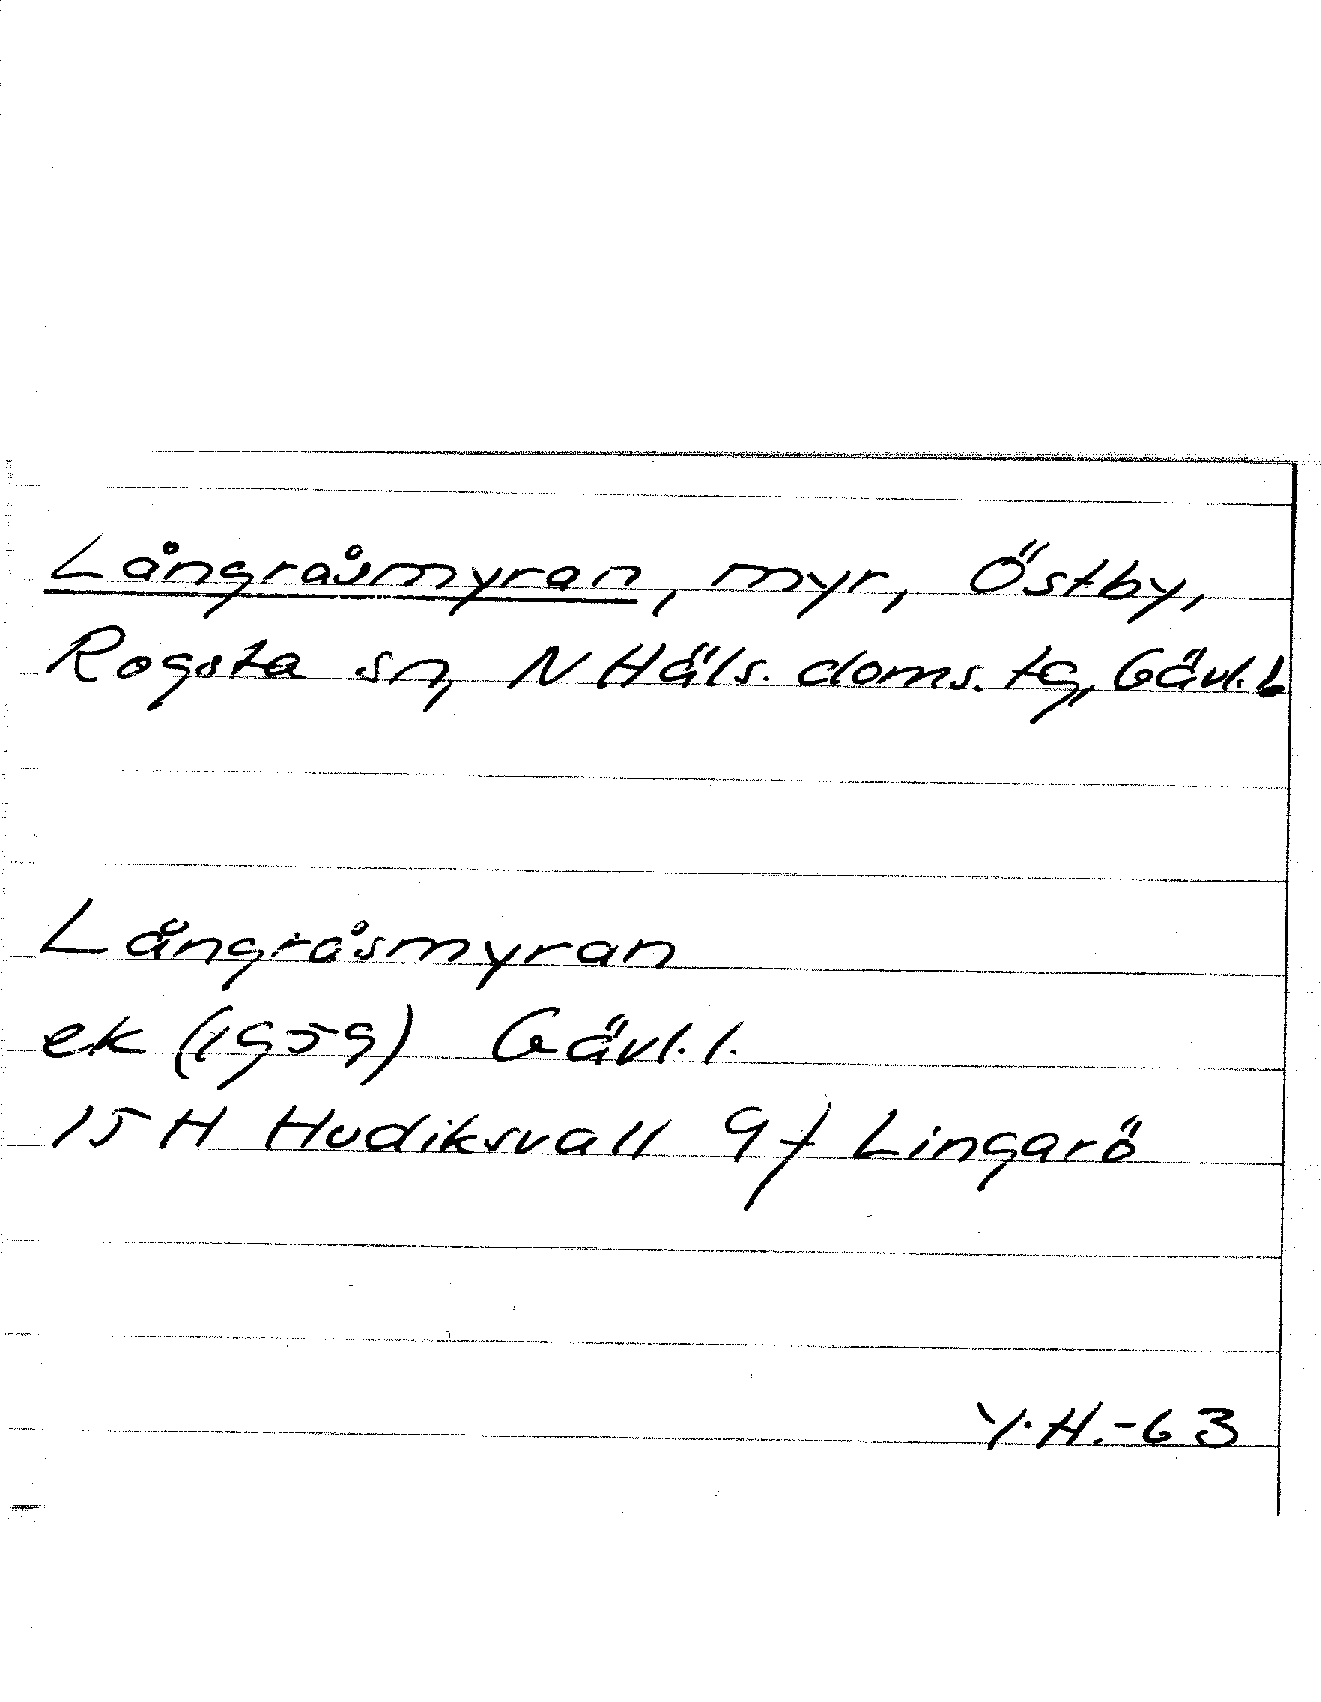 Långråsmyran, myr, Östby,
Rogsta sn, N Häls. doms. tg, Gävl. L
Långråsmyran
ek (1959) Gävl. l.
15 H Hudiksvall 9f Lingarö
Y.H.-63